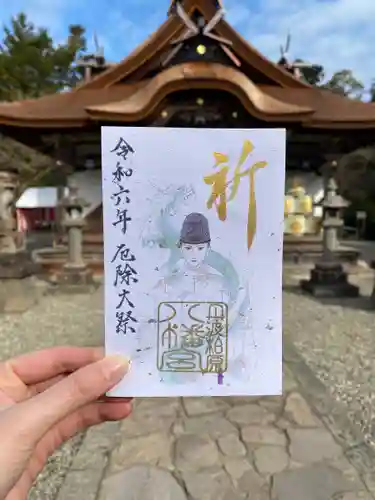 祈
丹波柏原
八幡宮
令和六年 厄除大祭